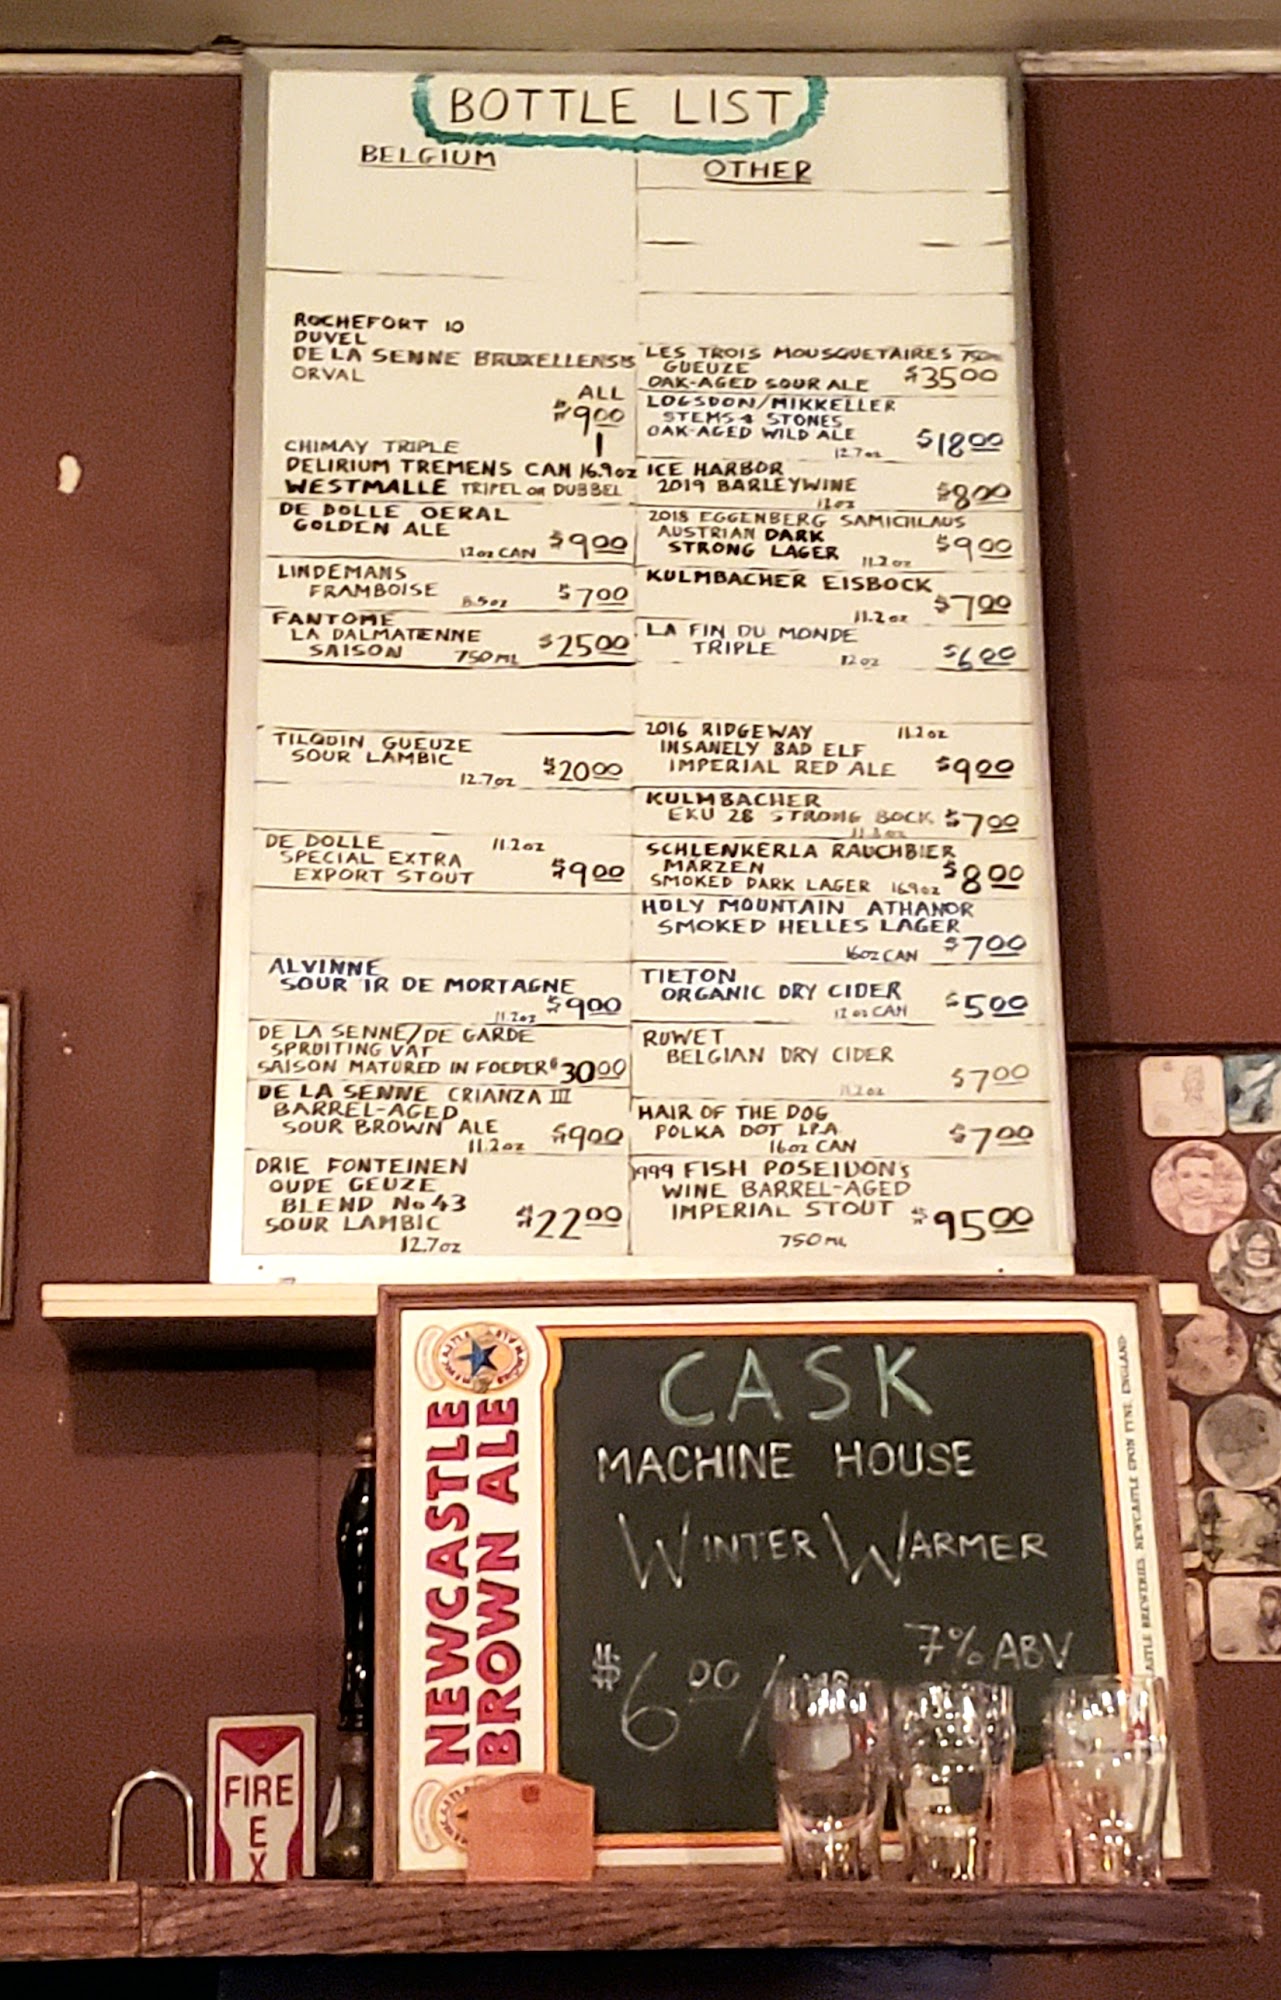 BOTTLE LIST
BELGIUM
ROCHEFORT 10
DUVEL
DE LA SENNE BRUXELLENSIS
ORVAL
ALL
$9.00
CHIMAY TRIPLE
DELIRIUM TREMENS CAN 16.9oz
WESTMALLE TRIPEL OR DUBBEL
DE DOLLE OERAL
GOLDEN ALE
12oz CAN $9.00
LINDEMANS
FRAMBOISE 8.5oz $7.00
FANTOME
LA DALMATENNE
SAISON 750ML $25.00
TILQUIN GUEUZE
SOUR LAMBIC
12.7oz $20.00
DE DOLLE 11.2oz
SPECIAL EXTRA
EXPORT STOUT $9.00
ALVINNE
SOUR'IR DE MORTAGNE
11.2oz $9.00
DE LA SENNE/DE GARDE
SPRUITING VAT
SAISON MATURED IN FOEDER $30.00
DE LA SENNE CRIANZA III
BARREL-AGED
SOUR BROWN ALE
11.2oz $9.00
DRIE FONTEINEN
OUDE GEUZE
BLEND No 43
SOUR LAMBIC $22.00
12.7oz
OTHER
LES TROIS MOUSQUETAIRES 750ML
GUEUZE
OAK-AGED SOUR ALE $35.00
LOGSDON/MIKKELLER
STEMS & STONES
OAK-AGED WILD ALE $18.00
12.7oz
ICE HARBOR
2019 BARLEYWINE $8.00
12oz
2018 EGGENBERG SAMICHLAUS
AUSTRIAN DARK
STRONG LAGER 11.2oz $9.00
KULMBACHER EISBOCK
11.2oz $7.00
LA FIN DU MONDE
TRIPLE 12oz $6.00
2016 RIDGEWAY 11.2oz
INSANELY BAD ELF
IMPERIAL RED ALE $9.00
KULMBACHER
EKU 28 STRONG BOCK $7.00
SCHLENKERLA RAUCHBIER
MÄRZEN
SMOKED DARK LAGER 16.9oz $8.00
HOLY MOUNTAIN ATHANOR
SMOKED HELLES LAGER
16oz CAN $7.00
TIETON
ORGANIC DRY CIDER
12oz CAN $5.00
RUWET
BELGIAN DRY CIDER
11.2oz $7.00
HAIR OF THE DOG
POLKA DOT I.P.A.
16oz CAN $7.00
1999 FISH POSEIDON'S
WINE BARREL-AGED
IMPERIAL STOUT $95.00
750ML
NEWCASTLE
BROWN ALE
CASK
MACHINE HOUSE
WINTER WARMER
7% ABV
$6.00/
NEWCASTLE UPON TYNE, ENGLAND
FIRE
E
X